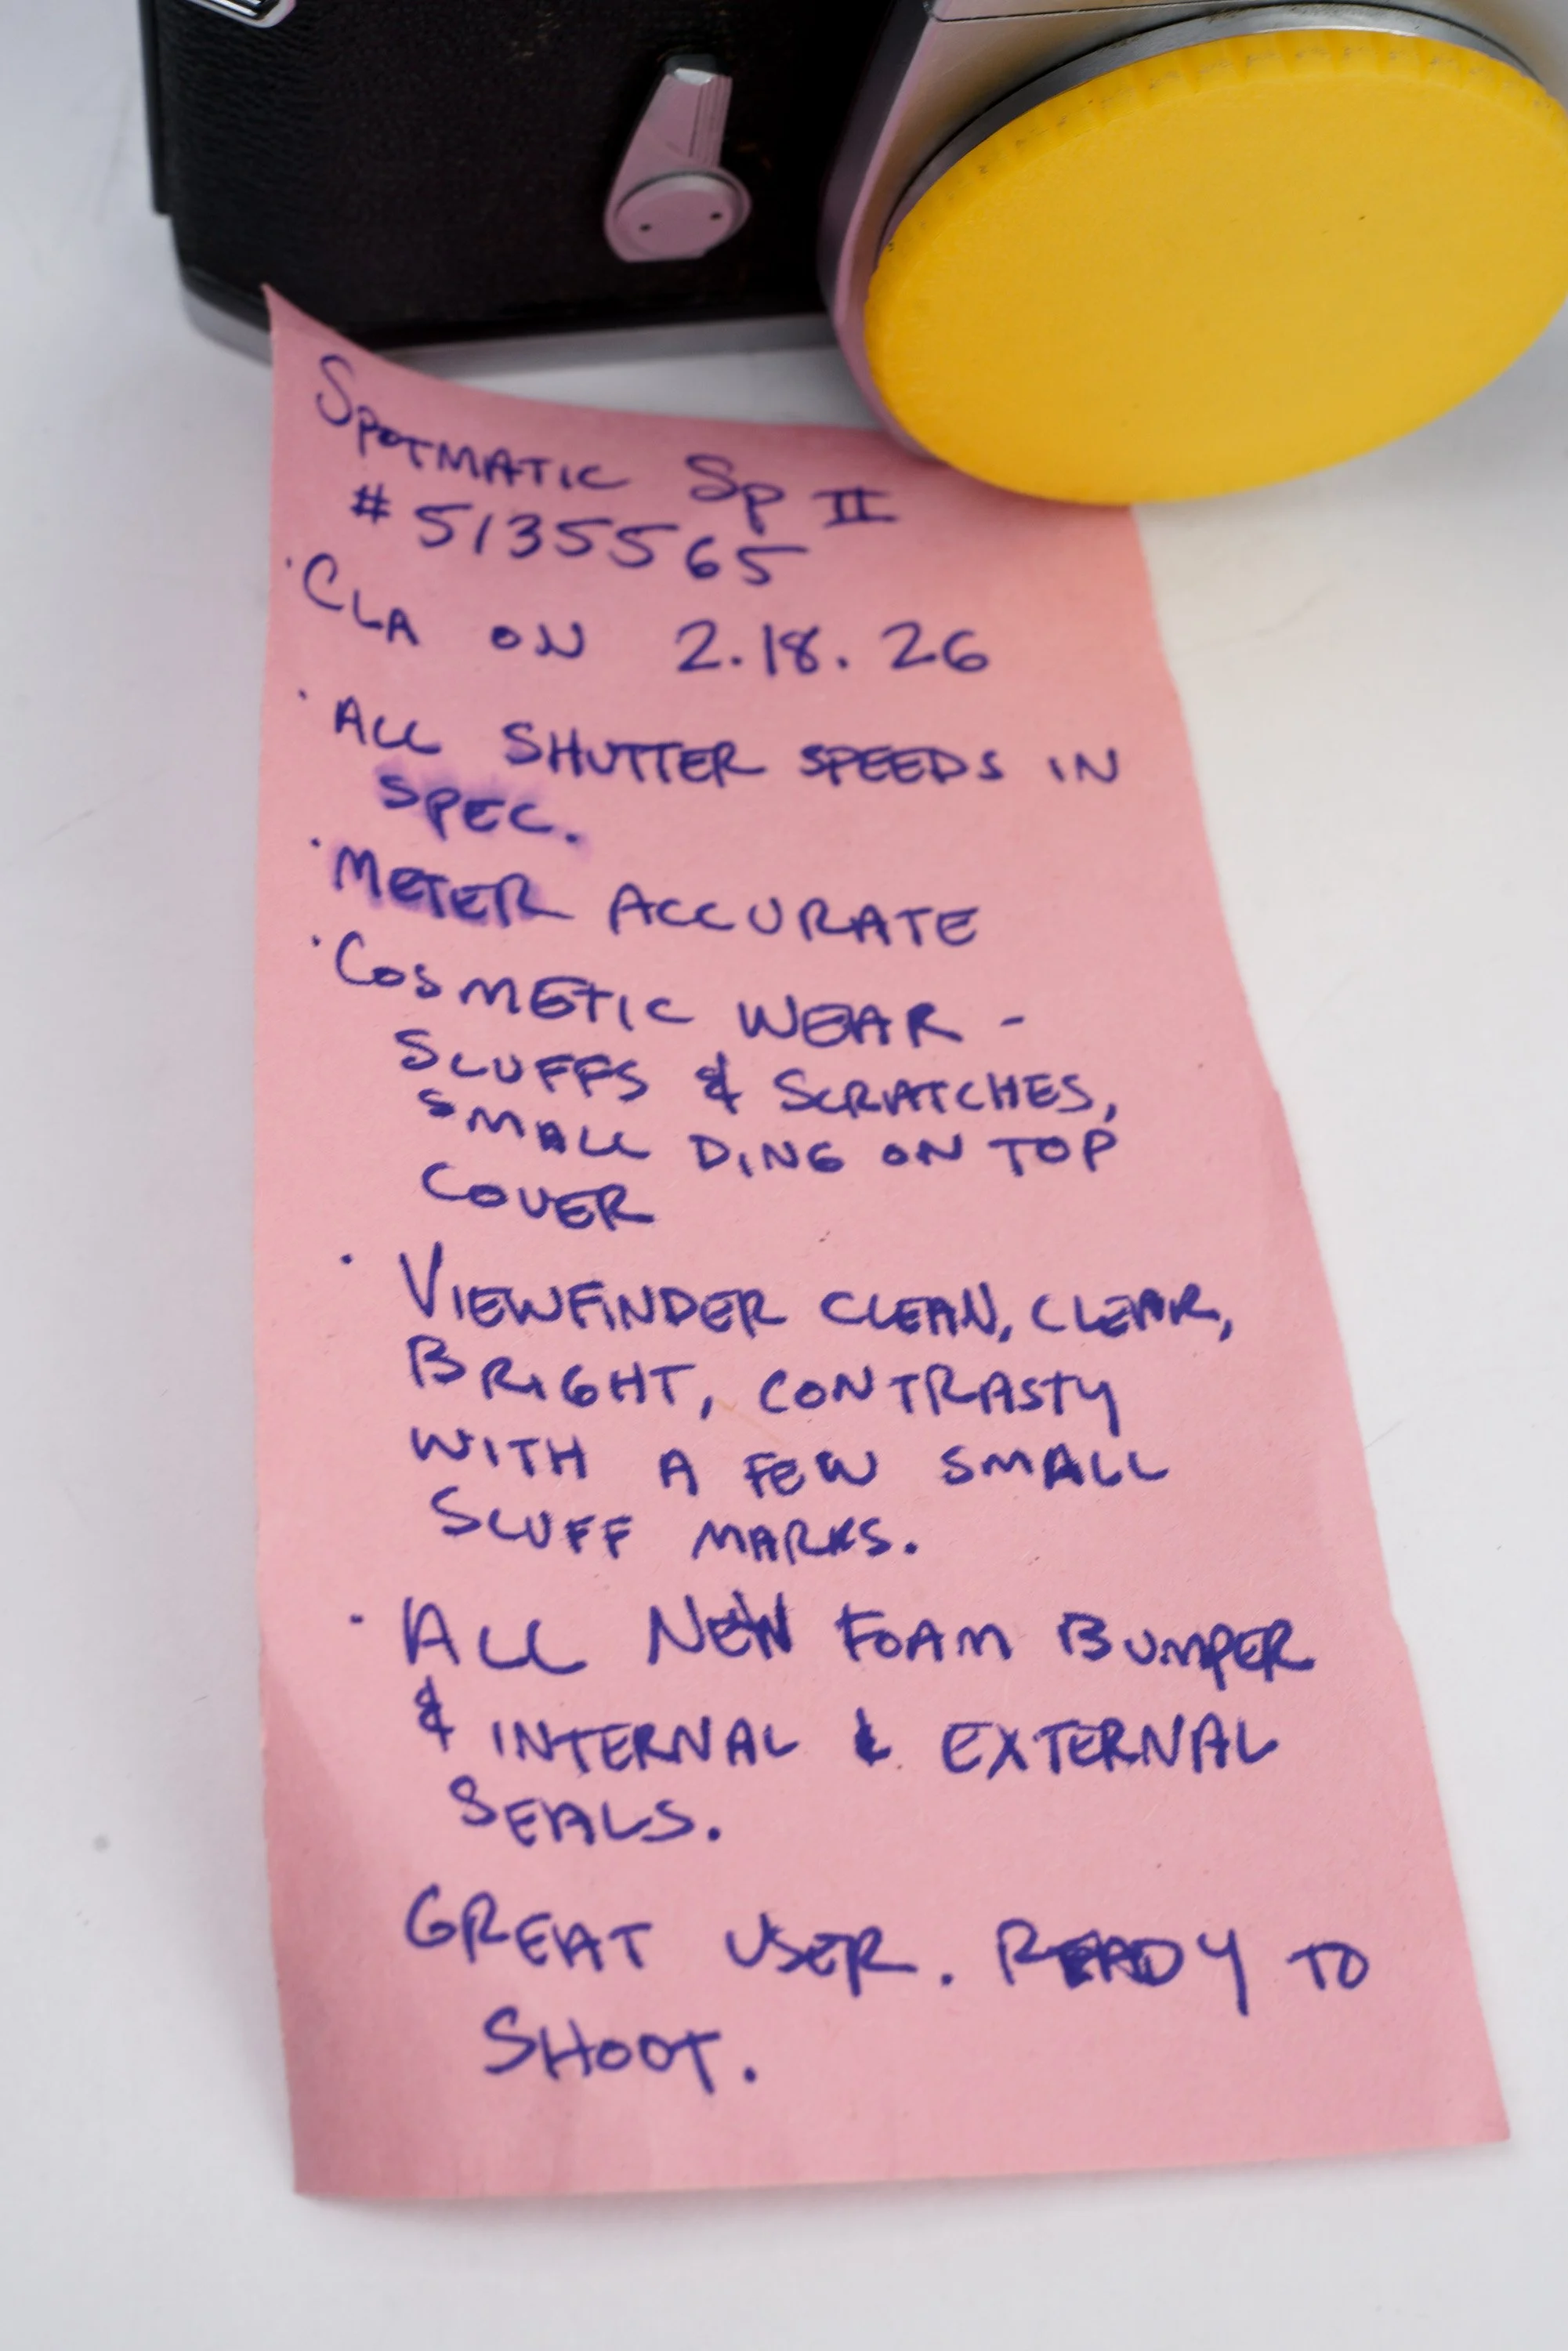 SPOTMATIC SP II
#5135565
· CLA ON 2.18.26
· ALL SHUTTER SPEEDS IN
SPEC.
· METER ACCURATE
· COSMETIC WEAR -
SCUFFS & SCRATCHES,
SMALL DING ON TOP
COVER
· VIEWFINDER CLEAN, CLEAR,
BRIGHT, CONTRASTY
WITH A FEW SMALL
SCUFF MARKS.
· ALL NEW FOAM BUMPER
& INTERNAL & EXTERNAL
SEALS.
GREAT USER. READY TO
SHOOT.